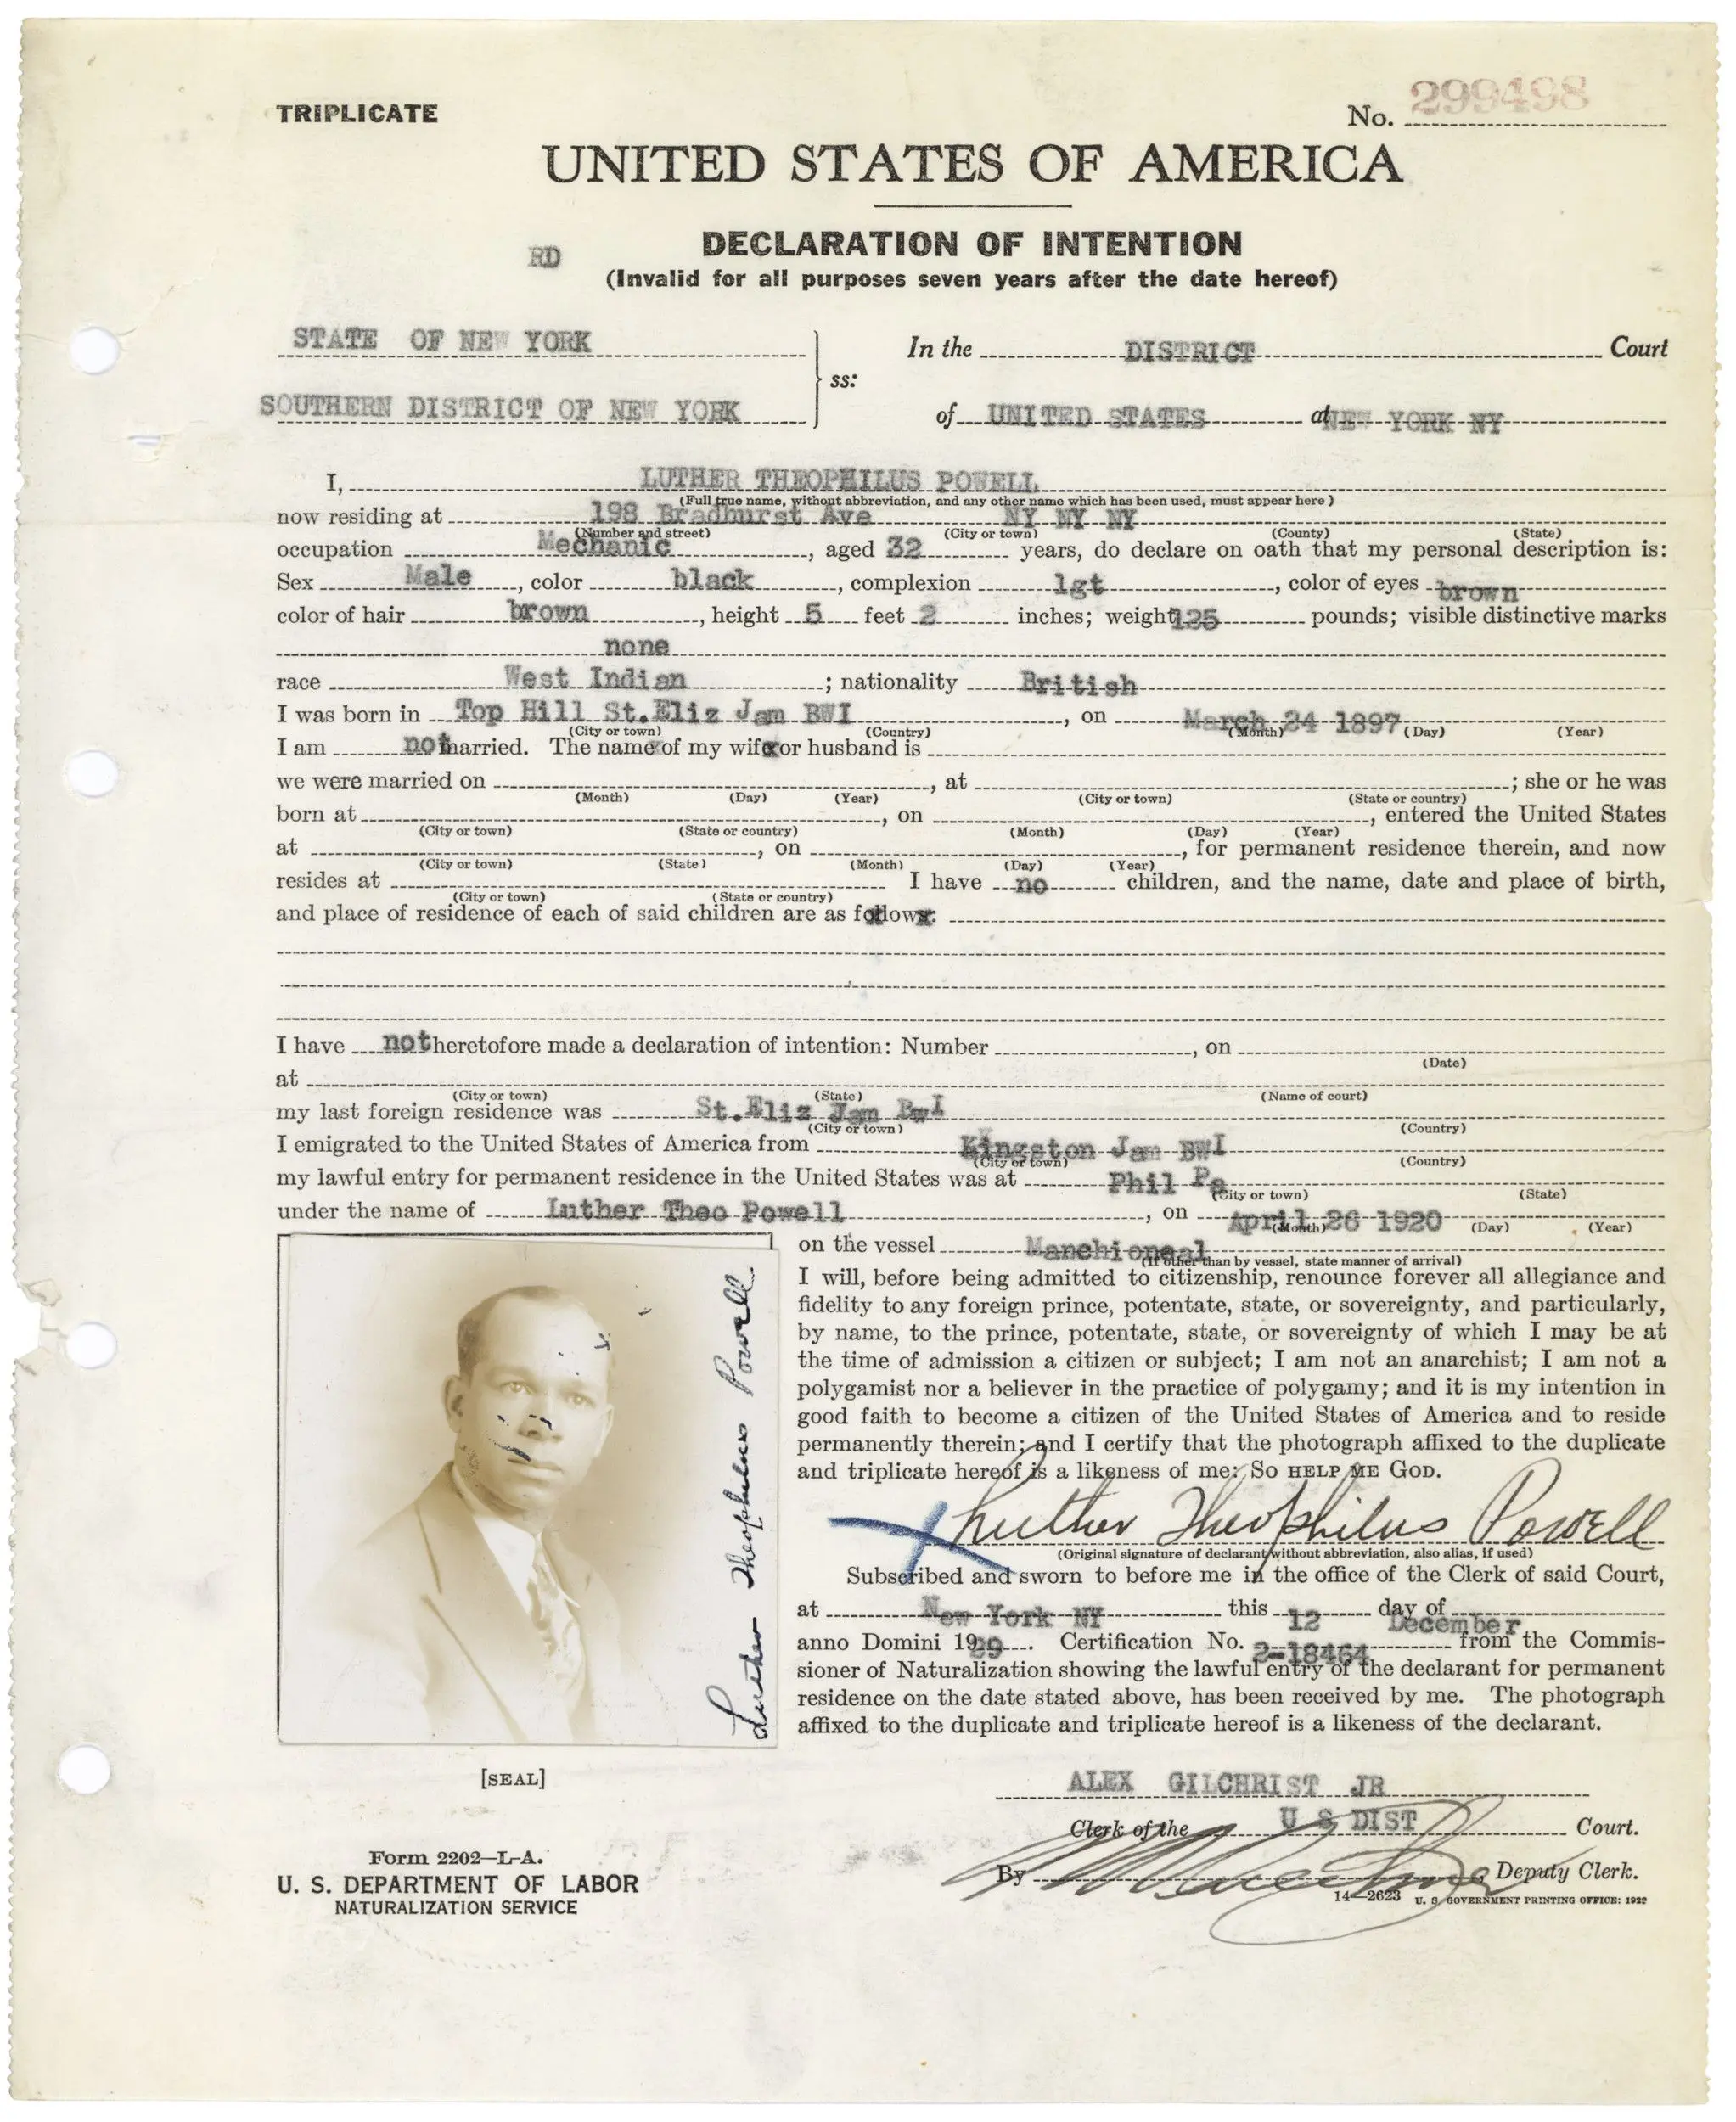 TRIPLICATE
No. 299498
UNITED STATES OF AMERICA
RD
DECLARATION OF INTENTION
(Invalid for all purposes seven years after the date hereof)
STATE OF NEW YORK
In the DISTRICT Court
ss:
SOUTHERN DISTRICT OF NEW YORK
of UNITED STATES at NEW YORK NY
I, LUTHER THEOPHILUS POWELL
(Full true name, without abbreviation, and any other name which has been used, must appear here)
now residing at 198 Bradhurst Ave NY NY NY
(Number and street) (City or town) (County) (State)
occupation Mechanic, aged 32 years, do declare on oath that my personal description is:
Sex Male, color black, complexion lgt, color of eyes brown
color of hair brown, height 5 feet 2 inches; weight 125 pounds; visible distinctive marks
none
race West Indian; nationality British
I was born in Top Hill St.Eliz Jam BWI, on March 24 1897
(City or town) (Country) (Month) (Day) (Year)
I am not married. The name of my wife or husband is
we were married on , at ; she or he was
(Month) (Day) (Year) (City or town) (State or country)
born at , on , entered the United States
(City or town) (State or country) (Month) (Day) (Year)
at , on , for permanent residence therein, and now
(City or town) (State) (Month) (Day) (Year)
resides at I have no children, and the name, date and place of birth,
(City or town) (State or country)
and place of residence of each of said children are as follows:
I have not heretofore made a declaration of intention: Number , on
(Date)
at
(City or town) (State) (Name of court)
my last foreign residence was St.Eliz Jam BwI
(City or town) (Country)
I emigrated to the United States of America from Kingston Jam BWI
(City or town) (Country)
my lawful entry for permanent residence in the United States was at Phil Pa
(City or town) (State)
under the name of Luther Theo Powell, on April 26 1920
(Month) (Day) (Year)
on the vessel Manchioneal
(If other than by vessel, state manner of arrival)
I will, before being admitted to citizenship, renounce forever all allegiance and
fidelity to any foreign prince, potentate, state, or sovereignty, and particularly,
by name, to the prince, potentate, state, or sovereignty of which I may be at
the time of admission a citizen or subject; I am not an anarchist; I am not a
polygamist nor a believer in the practice of polygamy; and it is my intention in
good faith to become a citizen of the United States of America and to reside
permanently therein; and I certify that the photograph affixed to the duplicate
and triplicate hereof is a likeness of me: SO HELP ME GOD.
Luther Theophilus Powell
Luther Theophilus Powell
(Original signature of declarant without abbreviation, also alias, if used)
Subscribed and sworn to before me in the office of the Clerk of said Court,
at New York NY this 12 day of December
anno Domini 1929. Certification No. 2-18464 from the Commis-
sioner of Naturalization showing the lawful entry of the declarant for permanent
residence on the date stated above, has been received by me. The photograph
affixed to the duplicate and triplicate hereof is a likeness of the declarant.
[SEAL]
ALEX GILCHRIST JR
Clerk of the U S DIST Court.
By Deputy Clerk.
Form 2202—L-A.
U. S. DEPARTMENT OF LABOR
NATURALIZATION SERVICE
14—2623 U. S. GOVERNMENT PRINTING OFFICE: 1929